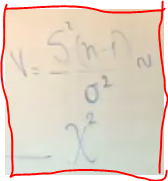 V = S²(n-1) / σ² ~
χ²